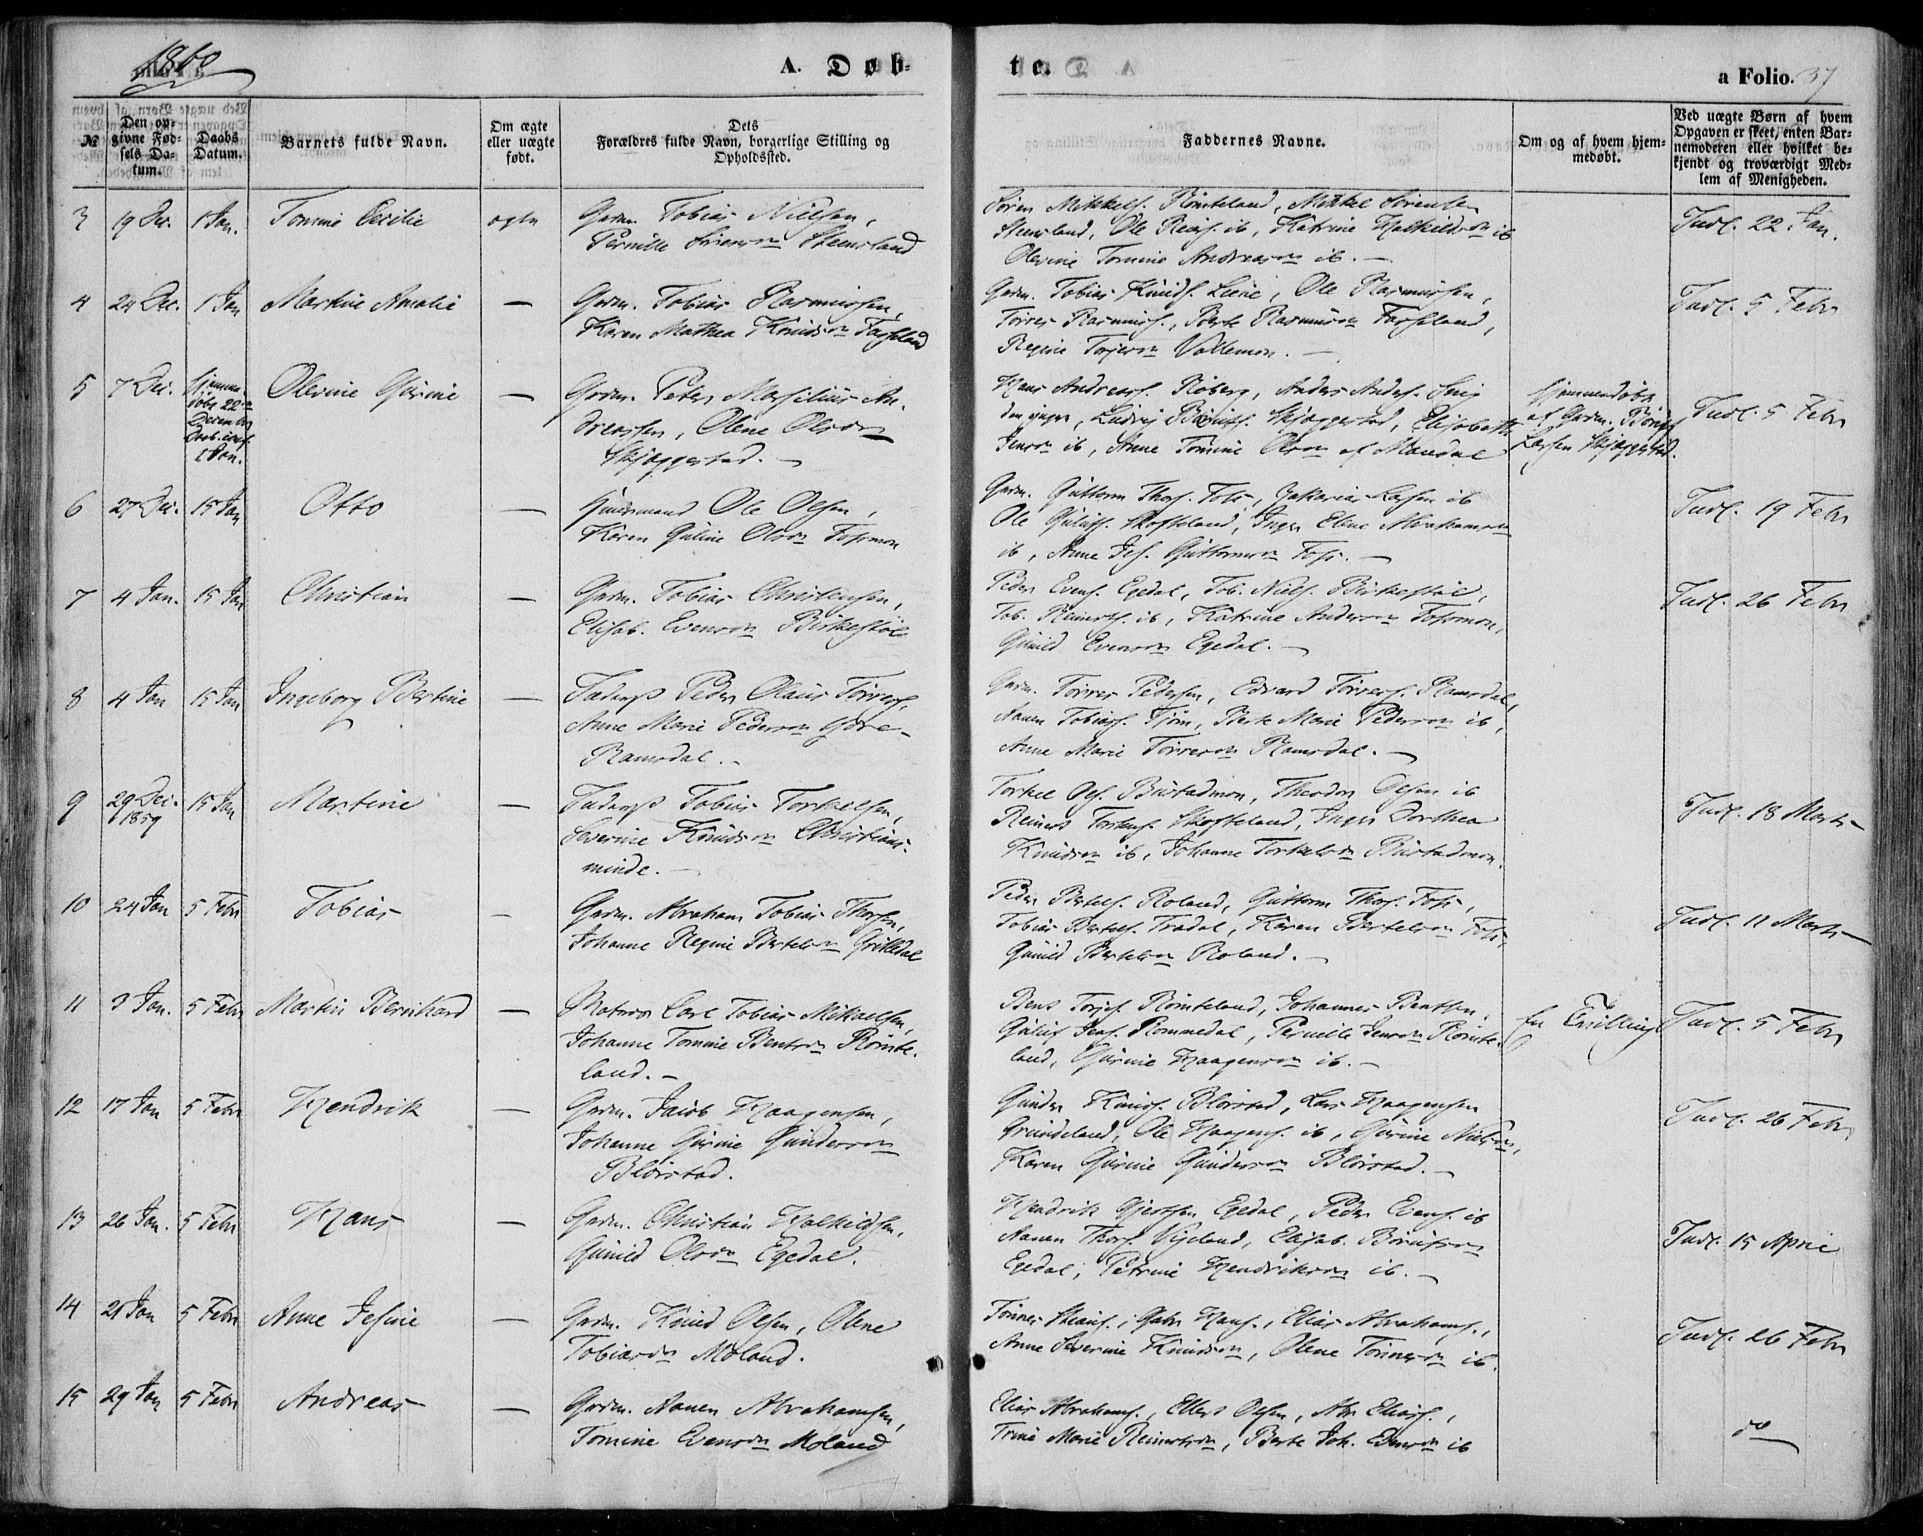 1860
A. Døb-
te.
a Folio. 37
№
Den op-
givne Fød-
sels Da-
tum.
Daabs
Datum.
Barnets fulde Navn.
Om ægte
eller uægte
født.
Dets
Forældres fulde Navn, borgerlige Stilling og
Opholdssted.
Faddernes Navne.
Om og af hvem hjem-
medøbt.
Ved uægte Børn af hvem
Opgaven er skeet, enten Bar-
nemoderen eller hvilket be-
kjendt og troværdigt Med-
lem af Menigheden.
3 19 Dec. 1 Jan. Tomine Cecilie ægte Grdm. Tobias Nielsen,
Pernille
Søren Mikkels. Rømteland, Mikkel Sørensen
Ole Reiers. ib, Katrine
Olevine Tomine Andreasdn ib.
Indl. 22 Jan.
4 24 Dec. 1 Jan Martine Amalie — Grdm. Tobias Rasmussen,
Karen Mathea Knudsdn
Grdm. Tobias Knuds. Ole Rasmussen,
Tørres Rasmuss., Berte Rasmusdn
Regine Torjersdn Vallemon.
Indl. 5 Febr
5 7 Dec. Hjemme-
døbt 22
December
1 Jan.
Olevine Gurine — Grdm. Peter Marselius An-
dreassen, Olene Olsdn
Skjæggestad.
Hans Andreass. Anders Anders.
den yngre, Ludvig Skjæggestad, Elisabeth
Jensdn ib, Anne Tomine Olsdn af Mandal
Hjemmedøbt
af Grdm.
Larsen Skjæggestad.
Indl. 5 Febr
6 27 Dec. 15 Jan Otto — Huusmand Ole Olsen,
Karen Guline Olsdn Fossmon
Grdm. Guttorm Thors. Foss, Zakarias ib
Ole Skofteland, Inger Elene Abrahamsdn
ib, Anne Guttormsdn Foss.
Indl. 19 Febr
7 4 Jan. 15 Jan Christian — Grdm. Tobias Christensen,
Elisab. Evensdn Birkestøl
Peder Evens. Egedal, Tob. Niels. Birkestøl,
Tob. Reinerts. ib, Katrine Andersdn Fossmon,
Gunild Evensdn Egedal.
Indl. 26 Febr
8 4 Jan 15 Jan Ingeborg Bertine — Inderst Peder Olaus Tørress.
Anne Marie Pedersdn
Ramsdal.
Grdm. Tørres Pedersen, Edvard Tørress. Ramsdal,
Aanen Tobiass. Fjon, Berte Marie Pedersdn ib,
Anne Marie Tørresdn Ramsdal.
9 29 Dec.
1859
15 Jan Martine — Inderst Tobias Torkelsen,
Severine Knudsdn Christians-
minde.
Torkel Ols. Bustadmon, Theodor Olsen ib
Reinert Torkels. Skofteland, Inger Dorthea
Knudsdn ib, Johanne Torkelsdn Bustadmon.
Indl. 18 Marts
10 24 Jan 5 Febr Tobias — Grdm. Abraham Tobias Thorsen,
Johanne Regine Bertelsdn
Peder Bertels. Roland, Guttorm Thors. Foss,
Tobias Bertels. Karen Bertelsdn Foss,
Gunild Bertelsdn Roland.
Indl. 11 Marts
11 3 Jan. 5 Febr Martin Bernhard — Matros Carl Tobias Mikaelsen,
Johanne Tomine Bentsdn Rømte-
land.
Bent Torjes. Rømteland, Johannes Bentsen,
Guluf Jens. Rommedal, Pernille Jensdn Rømte-
land, Gurine Haagensdn ib.
En Tvilling
Indl. 5 Febr
12 17 Jan 5 Febr Hendrik — Grdm. Jacob Haagensen,
Johanne Gurine Gundersdn
Bløistad.
Gunder Knuds. Bløistad, Lars Haagensen
Grundeland, Ole Haagens. ib, Gurine
Karen Gurine Gundersdn Bløistad.
Indl. 26 Febr
13 26 Jan. 5 Febr Hans — Grdm. Christian
Gunild Olsdn Egedal.
Hendrik Gjertsen Egedal, Peder Evens. ib
Aanen Thors. Vigeland, Elisab.
Egedal, Petrine Hendriksdn ib.
Indl. 15 April
14 21 Jan 5 Febr Anne Jesine — Grdm. Knud Olsen, Olene
Tobiasdn Moland.
Tønnes Gabr Hans., Elias Abrahams.,
Anne Severine Knudsdn, Olene Tønnesdn ib.
Indl. 26 Febr
15 29 Jan 5 Febr Andreas — Grdm. Aanen Abrahamsen,
Tomine Evensdn Moland
Elias Abrahams., Ellert Olsen, Abr Elias.,
Trine Marie Reinertsdn, Berte Joh. ib
do